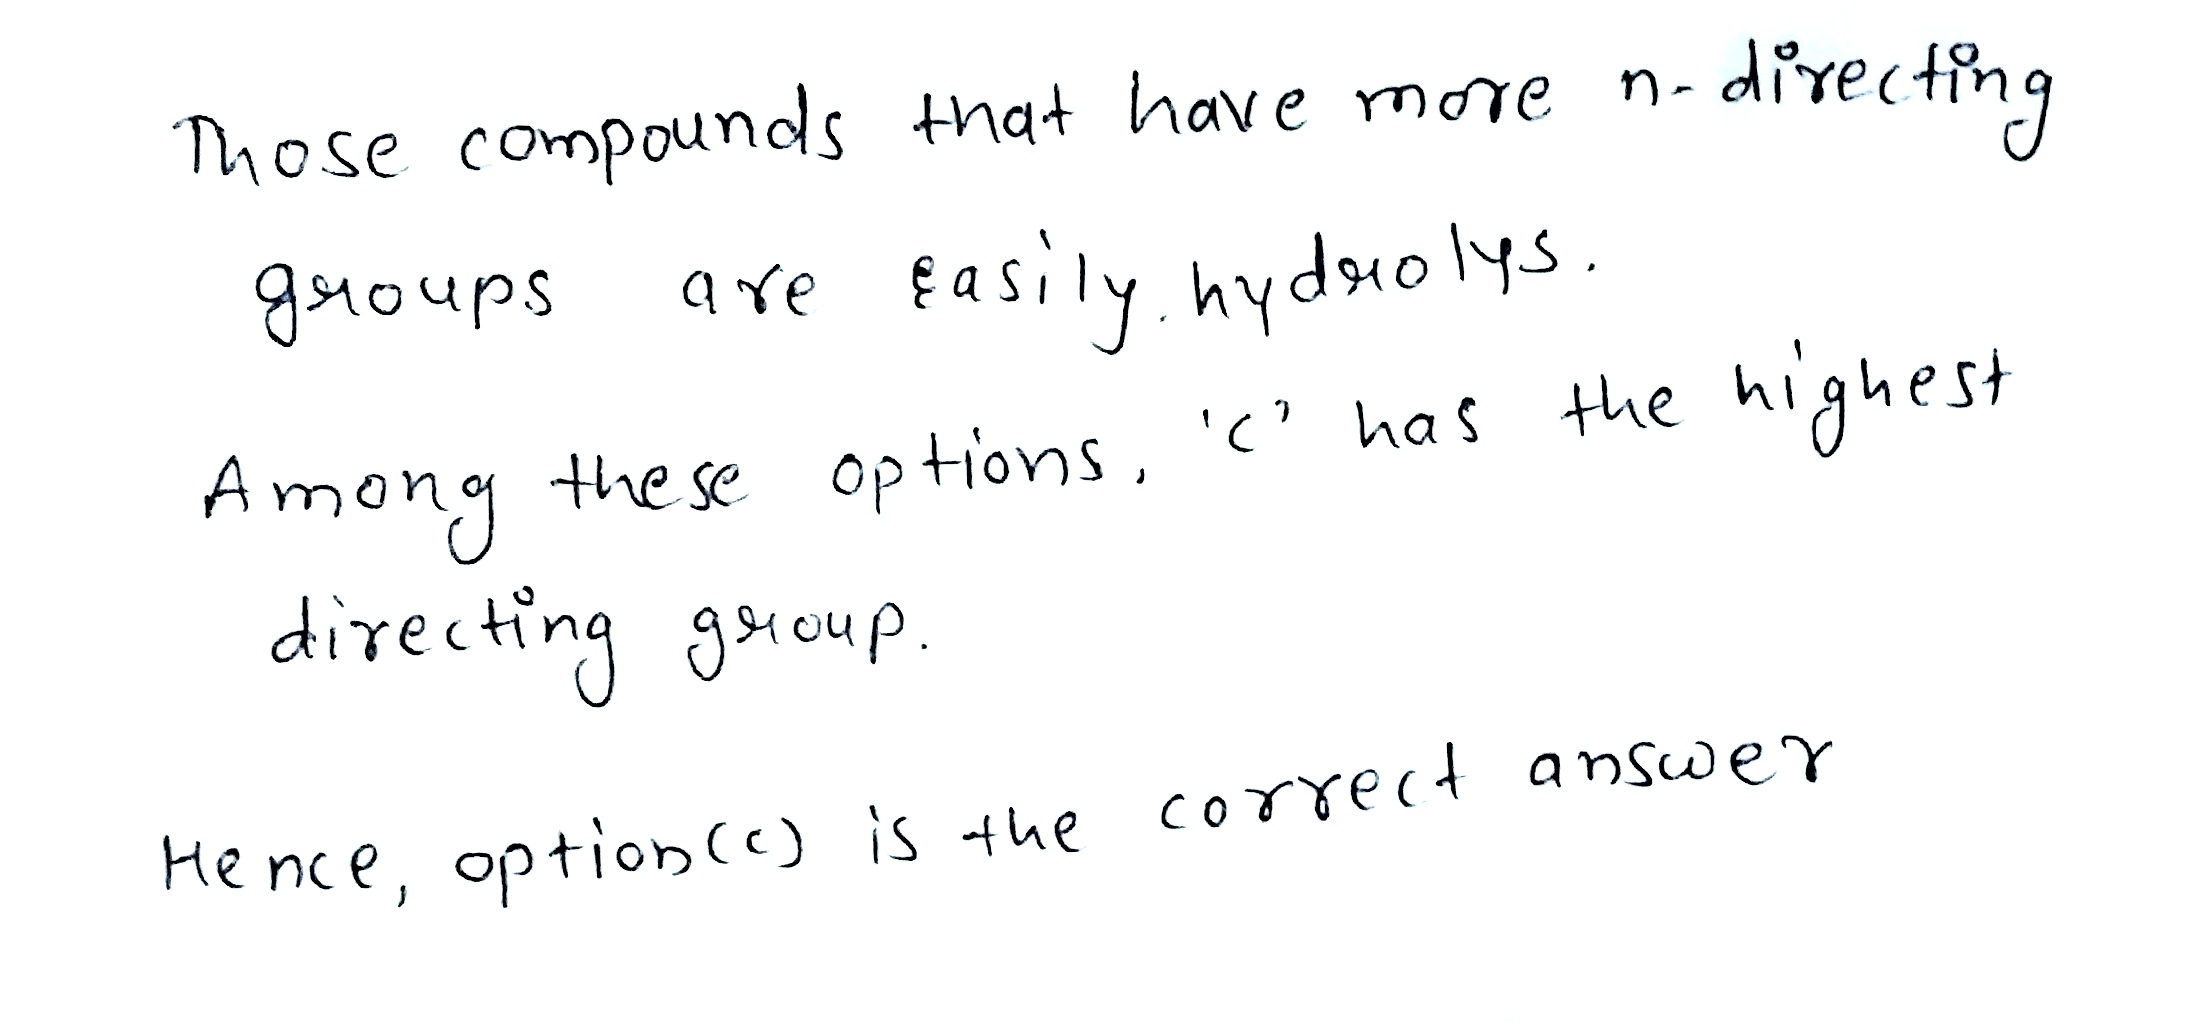 Those compounds that have more n-directing
groups are easily hydrolys.
Among these options, 'c' has the highest
directing group.
Hence, option(c) is the correct answer